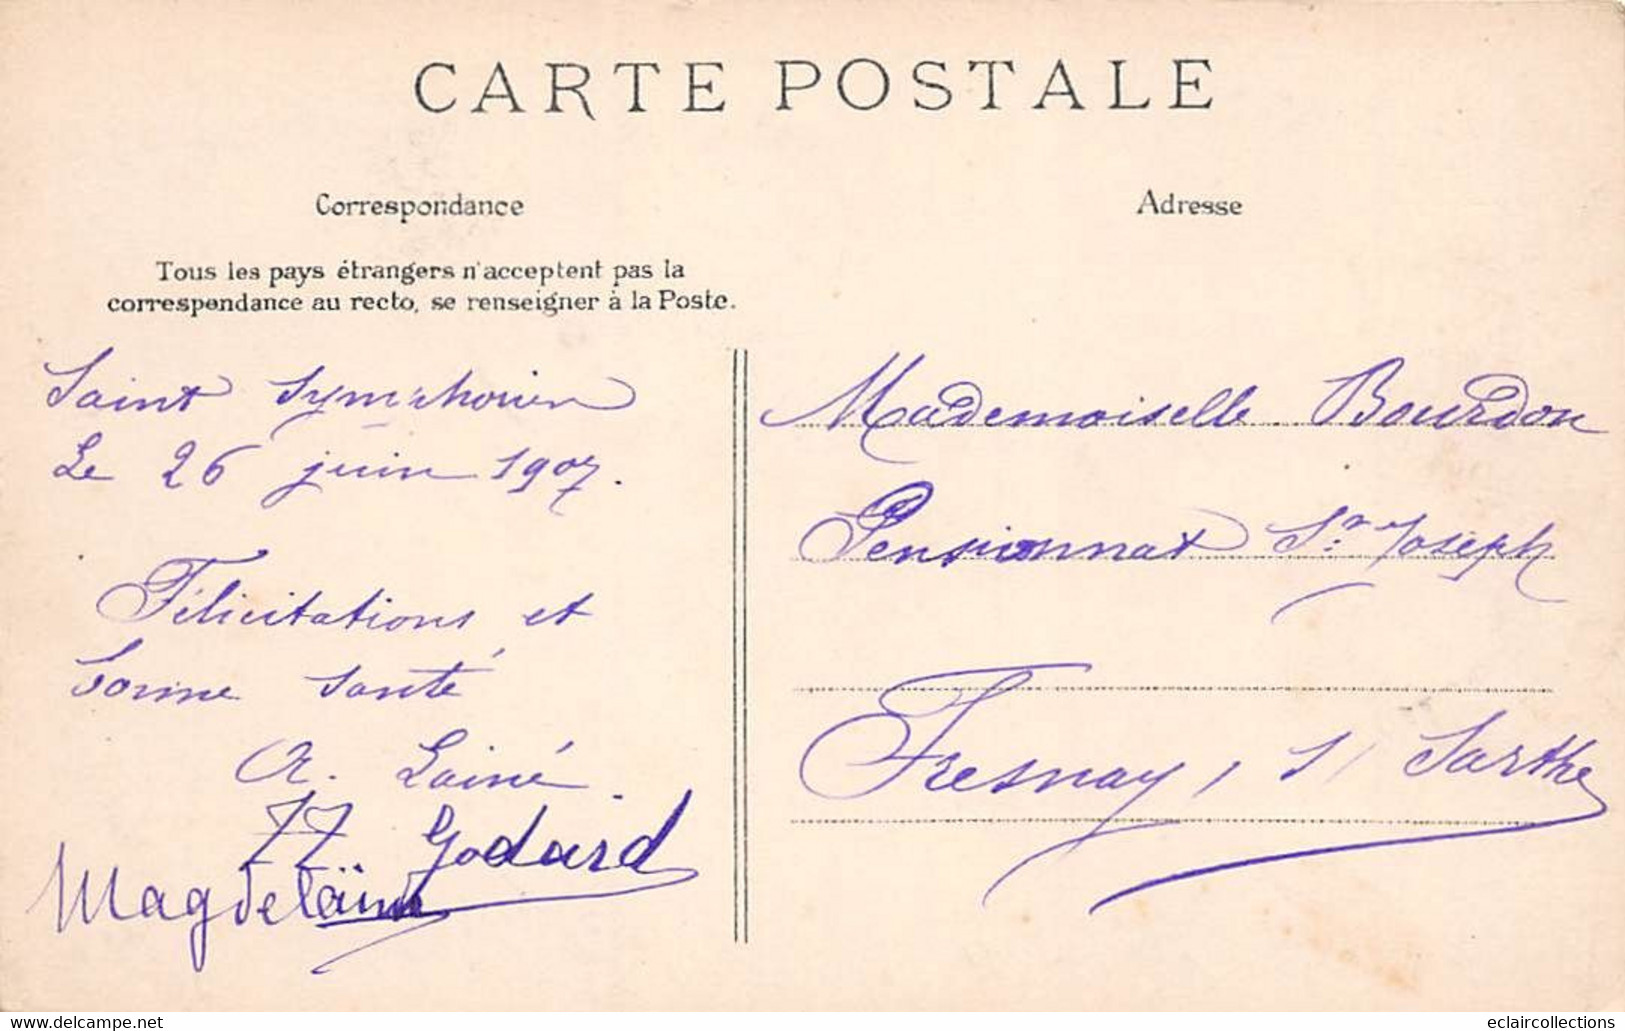 CARTE POSTALE
Correspondance
Tous les pays étrangers n'acceptent pas la
correspondance au recto, se renseigner à la Poste.
Saint Symphorien
Le 26 juin 1907.
Félicitations et
bonne santé
A. Lainé.
Godard
Magdelaine
Adresse
Mademoiselle Bourdon
Pensionnat St Joseph
Fresnay, s/ Sarthe
www.delcampe.net
eclaircollections